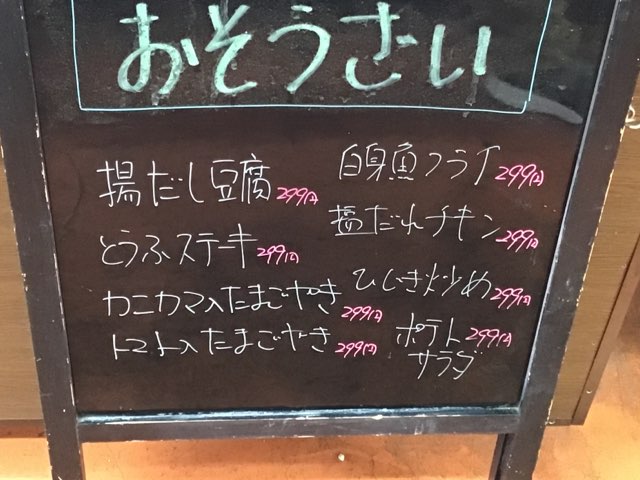 おそうざい
揚だし豆腐 299円
とうふステーキ 299円
カニカマ入たまごやき 299円
トマト入たまごやき 299円
白身魚フライ 299円
塩だれチキン 299円
ひじき炒め 299円
ポテト 299円
サラダ